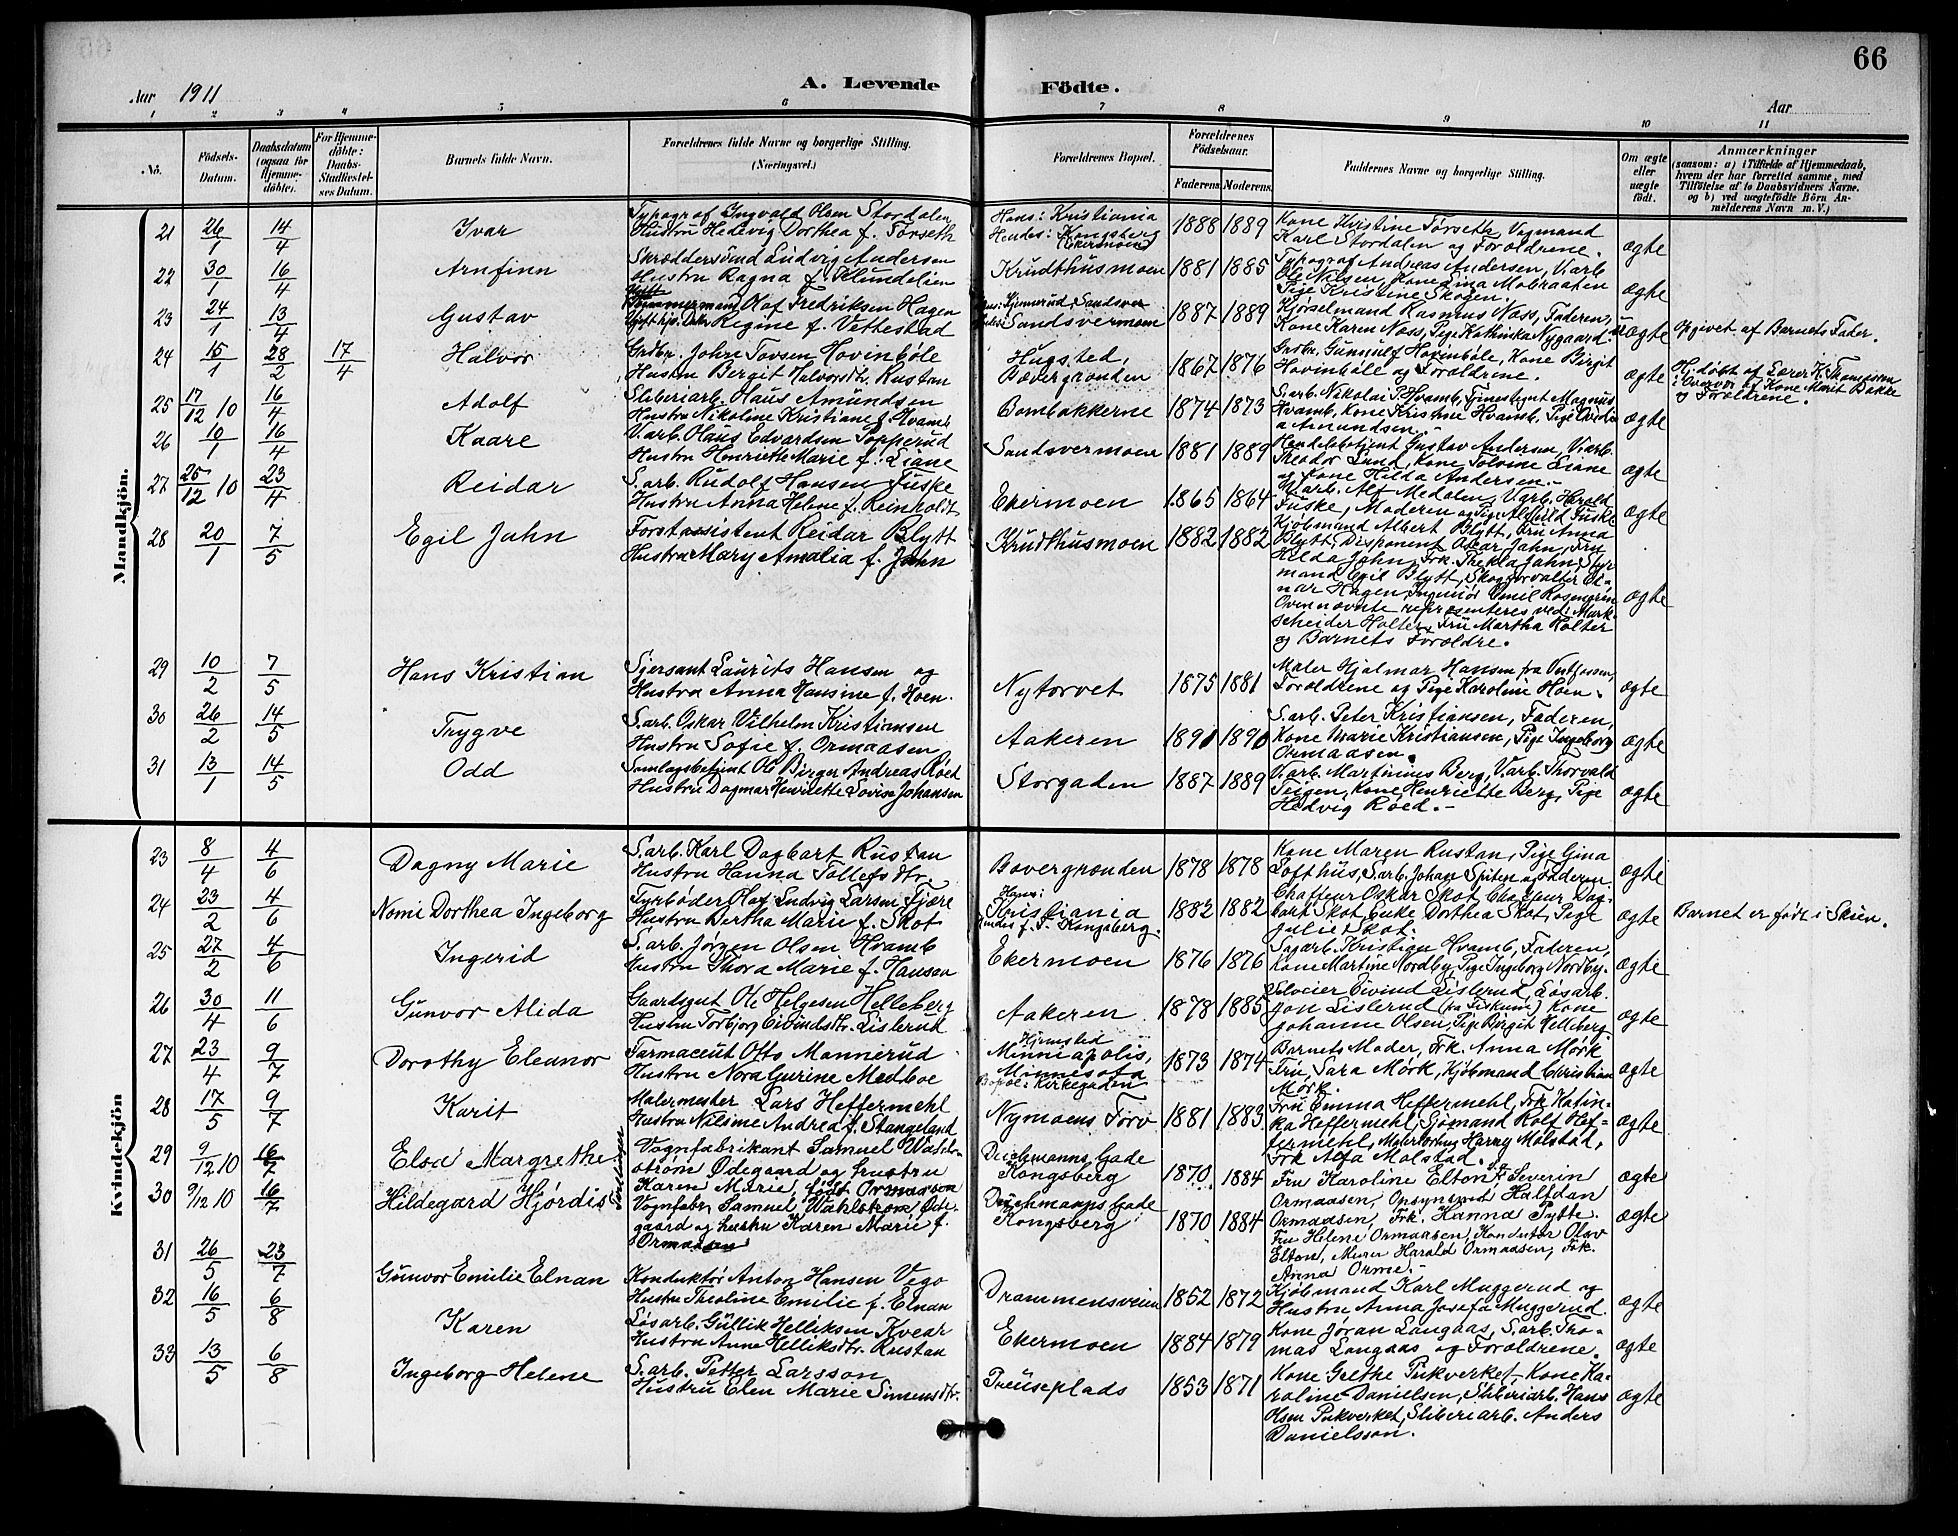 66
Aar 1911
A. Levende Födte.
Aar
1 2 3 4 5 6 7 8 9 10 11
No.
Födsels-Datum.
Daabsdatum (ogsaa for Hjemme-döbte).
For Hjemme-döbte: Daabs-Stadfæstel-ses Datum.
Barnets fulde Navn.
Forældrenes fulde Navne og borgerlige Stilling. (Næringsvei.)
Forældrenes Bopæl.
Forældrenes Födselsaar.
Faderens. Moderens.
Faddernes Navne og borgerlige Stilling.
Om ægte eller uægte födt.
Anmærkninger
(saasom: a) i Tilfælde af Hjemmedaab,
hvem der har forrettet samme, med
Tilföielse af to Daabsvidners Navne.
og b) ved uægtefödte Börn An-
melderens Navn m. V.)
Mandkjön.
21 26/1 14/4 Ivar
Typograf Ingvald Olsen Stordalen
Hustru Hedevig Dorthea f. Törseth
Hans: Kristiania
Hendes: Kongsberg (Ekermoen)
1888 1889
Kone Kristine Törseth, Vognmand
Karl Stordalen og Forældrene.
ægte
22 30/1 16/4 Arnfinn
Skræddersvend Ludvig Andersen
Hustru Ragna f. Klundelien
Krudthusmoen 1881 1885
Typograf Andreas Andersen, V.arb.
Ole Nilsen, Kone Lina Mobraaten
Pige Kristine Skogen.
ægte
23 24/1 13/4 Gustav
Olaf Fredriksen Hagen
Regine f. Vittestad
Kjennerud, Sandsver
Sandsvermoen 1887 1889
Kjørselmand Rasmus Næss, Faderen,
Kone Karen Næss, Pige Kathinka Nygaard.
uægte Opgivet af Barnets Fader.
24 15/1 28/2 17/4 Halvor
Grdbr. John Tovsen Hovinböle
Hustru Bergit Halvorsdtr. Rustan
Hugsted,
Bævergrænden 1867 1876
Grdbr. Gunnulf Hovinböle, Kone Birgit
Hovinböle og Forældrene.
ægte
Hj.döbt af Lærer K. Thomassen
i Overvær af Kone Marit Bakke
og Forældrene.
25 17/12 10 16/4 Adolf
Sliberiarb. Hans Amundsen
Hustru Nikoline Kristiane f. Hvamb
Bombakkerne 1874 1873
S.arb. Nikolai P. Hvamb, Tjenestegut Magnus
Hvamb, Kone Kristine Hvamb, Pige Ovidia
Amundsen.
ægte
26 10/1 16/4 Kaare
V.arb. Olaus Edvardsen Topperud
Hustru Henriette Marie f. Liane
Sandsvermoen 1881 1889
Handelsbetjent Gustav Andersen, V.arb.
Theodor Lund, Kone Tolvine Liane
og Kone Hilda Andersen.
ægte
27 25/12 10 23/4 Reidar
S.arb. Rudolf Hansen Fuske
Hustru Anna Helene f. Reinholdt
Ekermoen 1865 1864
V.arb. Alf Medalen, V.arb. Harald
Fuske, Moderen og Pige Alfhild Fuske
ægte
28 20/1 7/5 Egil Jahn
Forstassistent Reidar Blytt
Hustru Mary Amalia f. Jahn
Krudthusmoen 1882 1882
Kjöbmand Albert Blytt, Fru Anna
Blytt, Disponent Oskar Jahn, Fru
Hilda Jahn, Frk. Thekla Jahn, Styr-
mand Egil Blytt, Skogforvalter Ei-
nar Hagen, Ingeniør Emil Rosengren
Ovennævnte repræsenteres ved: Mark-
scheider Holter, Fru Martha Holter
og Barnets Forældre.
ægte
29 10/2 7/5 Hans Kristian
Sjersant Laurits Hansen og
Hustru Anna Hansine f. Hoen.
Nytorvet 1875 1881
Maler Hjalmar Hansen fra Vestfossen,
Forældrene og Pige Karoline Hoen.
ægte
30 26/2 14/5 Trygve
S.arb. Oskar Vilhelm Kristiansen
Hustru Sofie f. Ormaasen
Aakeren 1891 1890
S.arb. Peter Kristiansen, Faderen,
Kone Marie Kristiansen, Pige Ingeborg
Ormaasen.
ægte
31 13/1 14/5 Odd
Samlagsbetjent Ole Birger Andreas Röed
Hustru Dagmar Henriette Lovise Johansen
Storgaden 1887 1889
V.arb. Martinius Berg, V.arb. Thorvald
Teigen, Kone Henriette Berg, Pige
Hedvig Röed.
ægte
Kvindekjön
23 8/4 4/6 Dagny Marie
S.arb. Karl Dagbart Rustan
Hustru Hanna Tollefsdtr.
Bævergrænden 1878 1878
Kone Maren Rustan, Pige Gina
Lofthus, S.arb. Johan Spiten og Faderen.
ægte
24 23/2 4/6 Nomi Dorthea Ingeborg
Fyrböder Olaf Ludvig Larsen Fjære
Hustru Bertha Marie f. Skot
Hans:
Kristiania
Hendes f. T. Kongsberg.
1882 1882
Chaffeur Oskar Skot, Chaffeur Dag-
bart Skot, Enke Dorthea Skot, Pige
Julie Skot.
ægte Barnet er født i Skien.
25 27/2 4/6 Ingerid
S.arb. Jørgen Olsen Hvamb
Hustru Thora Marie f. Hansen
Ekermoen 1876 1876
Sagarb. Kristian Hvamb, Faderen,
Kone Martine Nordby, Pige Ingeborg Nordby.
ægte
26 30/4 11/6 Gunvor Alida
Gaardsgut Ole Helgesen Helleberg
Hustru Torbjørg Eivindsdtr. Lislerud
Aakeren 1878 1885
Selveier Eivind Lislerud, Løsarb.
Jon Lislerud (fra Fiskum), Kone
Johanne Olsen, Pige Birgit Helleberg
ægte
27 23/4 9/7 Dorothy Eleanor
Farmaceut Otto Mannerud
Hustru Nora Gurine Medboe
Hjemsted
Minniapolis,
Minnesota
Bopæl: Kirkegaden
1873 1874
Barnets Moder, Frk. Anna Mörk
Fru Sara Mörk, Kjöbmand Christian
Mörk.
ægte
28 17/5 9/7 Karit
Malermester Lars Heffermehl
Hustru Nilsine Andrea f. Stangeland
Nymoens Torv 1881 1883
Fru Emma Heffermehl, Frk. Katin-
ka Heffermehl, Sjömand Rolf Hef-
fermehl, Malerlærling Harry Molstad,
Frk. Alfa Molstad.
ægte
29 9/12 10 16/7 Elsa Margrethe
Tvillinger
Vognfabrikant Samuel Wahl-
ström Ødegaard og hustru
Karen Marie, født Ormaasen
Deichmanns Gade
Kongsberg 1870 1884
Fru Karoline Elton, Severin
Ormaasen, Opsynsmd Halfdan
Ormaasen, Frk. Hanna Pytte.
ægte
30 9/12 10 16/7 Hildegard Hjördis
Vognfabr. Samuel Wahlström Øde-
gaard og hustru Karen Marie f.
Ormaasen
Deichmanns Gade
Kongsberg 1870 1884
Fru Helene Ormaasen, Konduktør Olav
Elton, Murer Harald Ormaasen, Frk.
Anna Orme.
ægte
31 26/5 23/7 Gunvor Emilie Elnan
Konduktör Anton Hansen Vego
Hustru Theoline Emilie f. Elnan
Drammensveien 1852 1872
Kjöbmand Karl Muggerud og
Hustru Anna Josefa Muggerud.
ægte
32 16/5 6/8 Karen
Løsarb. Gullik Helliksen Kvear
Hustru Anne Helliksdtr. Rustan
Ekermoen 1884 1879
Kone Jøran Langaas, S.arb. Tho-
mas Langaas og Forældrene.
ægte
33 13/5 6/8 Ingeborg Helene
S.arb. Petter Larsson
Hustru Elen Marie Simensdtr.
Preuseplads 1853 1871
Kone Grethe Pukverket, Kone Ka-
roline Danielsen, Sliberiarb. Hans
Olsen Pukverket, Sliberiarb. Anders
Danielsson.
ægte